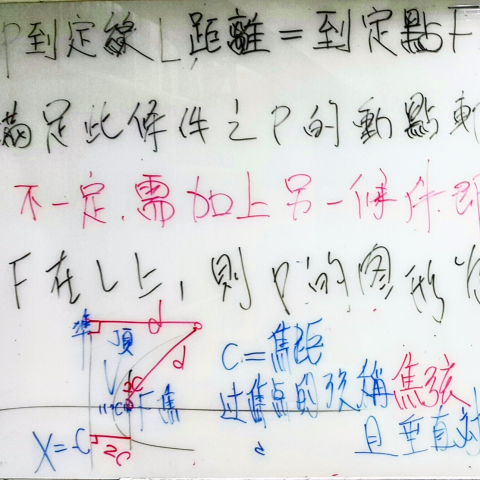 P到定線L距離=到定點F
滿足此條件之P的動點軌
不一定,需加上另一條件即
F在L上,則P的圖形為
準 d
頂
d
V
2C
F焦
X=-C
2C
C=焦距
过焦点的弦稱焦弦
且垂直对